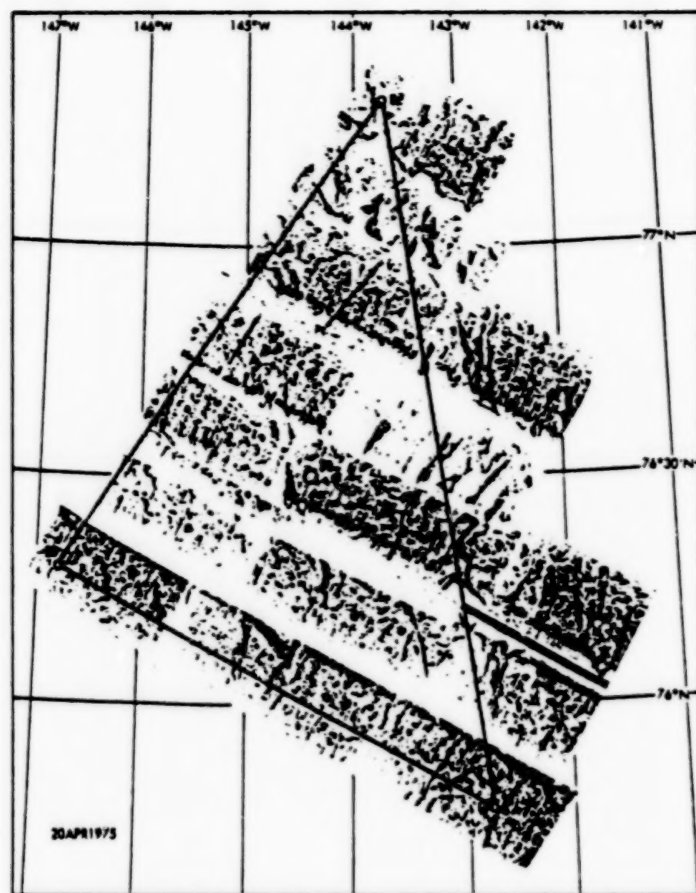 147°W 146°W 145°W 144°W 143°W 142°W 141°W
77°N
76°30'N
76°N
20APR1975